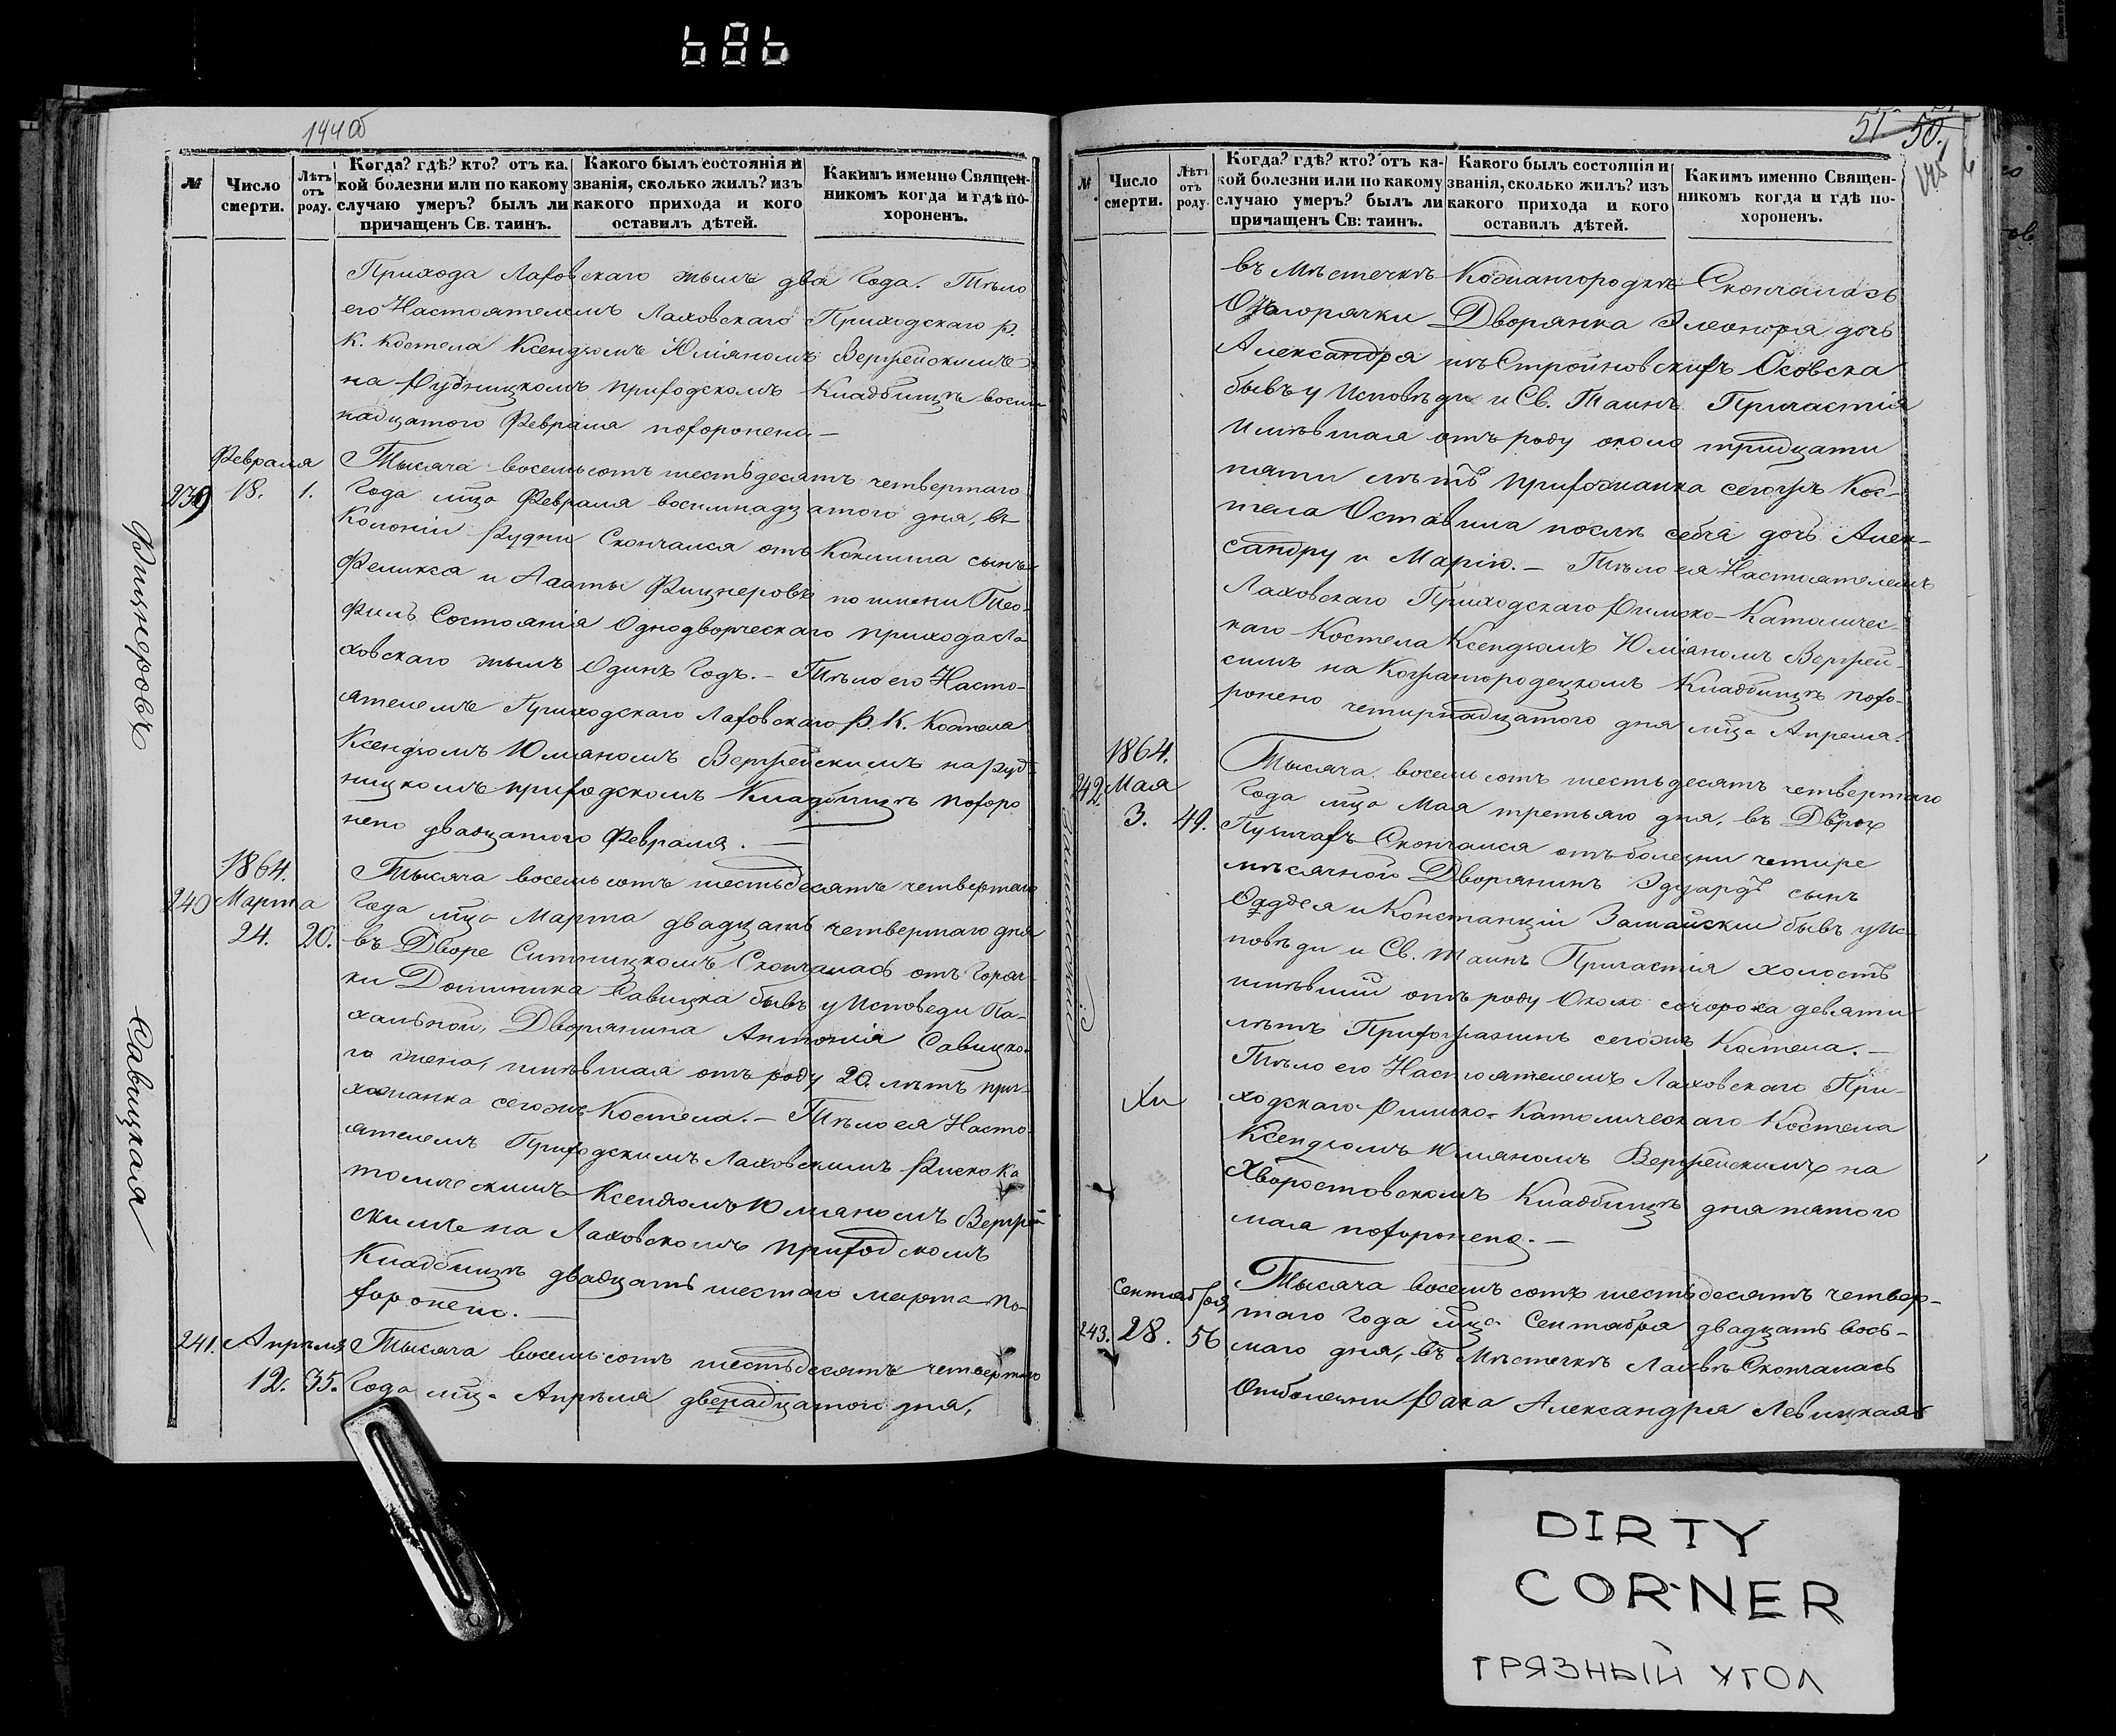 144 об
№
Число смерти.
Лѣтъ отъ роду.
Когда? гдѣ? кто? отъ ка-
кой болезни или по какому
случаю умеръ? былъ ли
причащенъ Св. таинъ.
Какого былъ состоянія и
званія, сколько жилъ? изъ
какого прихода и кого
оставилъ дѣтей.
Какимъ именно Священ-
никомъ когда и гдѣ по-
хороненъ.
Прихода Лаховскаго жылъ два Года. Тѣло
его Настоятелемъ Лаховскаго Приходскаго Р.
К. Костела Ксендзомъ Юліяномъ
на Рудницкомъ приходскомъ Кладбищѣ восем
надцатого Февраля похоронено.—
Фицнеровъ
239
Февраля
18. 1.
Тысяча восемьсотъ шестьдесятъ четвертаго
Года мца Февраля восемнадцатого дня, въ
Колоніи Рудни Скончался отъ Коклиша сынъ
Феликса и Агаты Фицнеровъ по имени Тео-
филь Состоянія Однодворческаго прихода Ла-
ховскаго жылъ Одинъ Годъ.— Тѣло его Насто-
ятелемъ Приходскаго Лаховскаго Р. К. Костела
Ксендзомъ Юліаномъ на Руд-
ницкомъ приходскомъ Кладбищѣ похоро
нено двадцатого Февраля.—
Савицкая
240
1864.
Марта
24. 20.
Тысяча восемьсотъ шестьдесятъ четвертаго
Года мца Марта двадцать четвертаго дня
въ Дворе Ситницкомъ Скончалась отъ Горяч-
ки Доминика Савицка бывъ у Исповеди Па-
хальной, Дворянина Антонія Савицко-
го жена, имѣвшая отъ роду 20. лѣтъ при-
хожанка сегожъ Костела.— Тѣло ея Насто-
ятелемъ Приходскимъ Лаховскимъ Риско Ка
толическимъ Ксендзомъ Юліаномъ
скимъ на Лаховскомъ приходскомъ
Кладбищѣ двадцать шестаго Марта по-
хоронено.—
241. Апрѣля
12. 35.
Тысяча восемьсотъ шестьдесятъ четвертаго
Года мца Апрѣля двенадцатого дня,
51 50.
145
№
Число смерти.
Лѣтъ отъ роду.
Когда? гдѣ? кто? отъ ка-
кой болезни или по какому
случаю умеръ? былъ ли
причащенъ Св: таинъ.
Какого былъ состоянія и
званія, сколько жилъ? изъ
какого прихода и кого
оставилъ дѣтей.
Какимъ именно Священ-
никомъ когда и гдѣ по-
хороненъ.
въ Мѣстечкѣ Кожангородкѣ Скончалась
Дворянка Элеонора дочь
Александра изъ Стройновскихъ Осовска
бывъ у Исповѣди и Св. Таинъ Причастія
Имѣвшая отъ роду около тридцати
пяти лѣтъ прихожанка сегожъ Кос-
тела Оставила послѣ себя дочь Алек-
сандру и Марію.— Тѣло ея Настоятелемъ
Лаховскаго Приходскаго Римско-Католичес-
каго Костела Ксендзомъ Юліаномъ
на Кожангородецкомъ Кладбищѣ похо-
ронено четирнадцатого дня мца Апреля.
1864.
242. Мая
3. 49.
Тысяча восемьсотъ шестьдесятъ четвертаго
Года мца Мая третьяго дня, въ Дворѣ
Скончался отъ болезни четире
мѣсячной Дворянинъ Эдуардъ сынъ
и Констанціи бывъ у Ис-
повѣди и Св. Таинъ Причастія холостъ
имѣвшій отъ роду Около сорока девяти
лѣтъ Прихожанинъ сегожъ Костела.—
Тѣло его Настоятелемъ Лаховскаго При-
ходскаго Римско-Католическаго Костела
Ксендзомъ Юліяномъ на
Хворостовскомъ Кладбищѣ дня пятого
мая похоронено.—
Сентября
243. 28. 56
Тысяча восемьсотъ шестьдесятъ четвер-
таго Года мца Сентября двадцать вось-
маго дня, въ Мѣстечкѣ Лахвѣ Скончалась
Отъ болезни Рака Александра Левицкая
DIRTY
CORNER
ГРЯЗНЫЙ УГОЛ